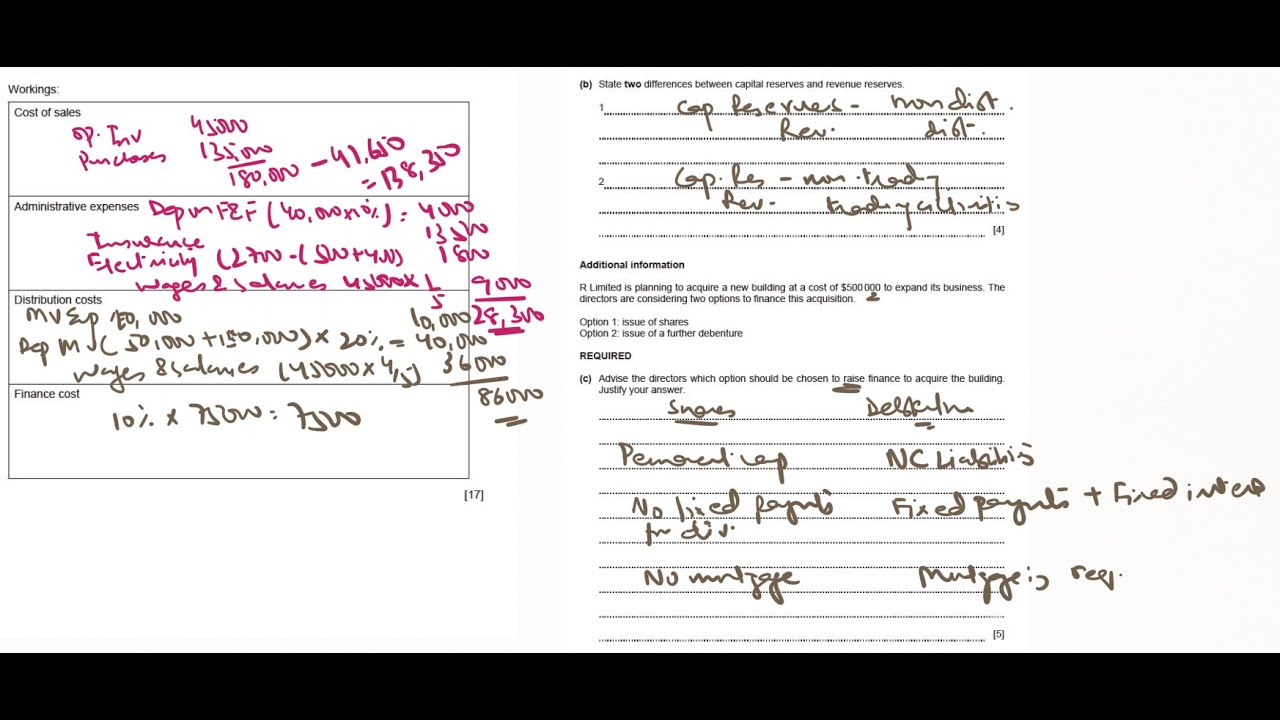 Workings:
Cost of sales
op. Inv 45000
Purchases 135,000
180,000 - 41,650
= 138,350
Administrative expenses Dep on F&F (40,000x10%) = 4000
Insurance 13500
Electricity (2700 - (500+400) 1800
Wages & Salaries 45000 x 1/5 9000
28,300
Distribution costs
MV Exp 10,000
Dep MV (50,000 + 150,000) x 20% = 40,000
Wages & Salaries (45000 x 4/5) 36000
86000
Finance cost
10% x 75000 = 7500
[17]
(b) State two differences between capital reserves and revenue reserves.
1 Cap Reserves - non dist.
Rev. dist.
2 Cap. Res - non-trading
Rev. trading activities
[4]
Additional information
R Limited is planning to acquire a new building at a cost of $500 000 to expand its business. The
directors are considering two options to finance this acquisition. 2
Option 1: issue of shares
Option 2: issue of a further debenture
REQUIRED
(c) Advise the directors which option should be chosen to raise finance to acquire the building.
Justify your answer.
Shares Debenture
Permanent cap NC Liabilities
No fixed payments Fixed payments + Fixed interest
for div.
No mortgage Mortgage is req.
[5]